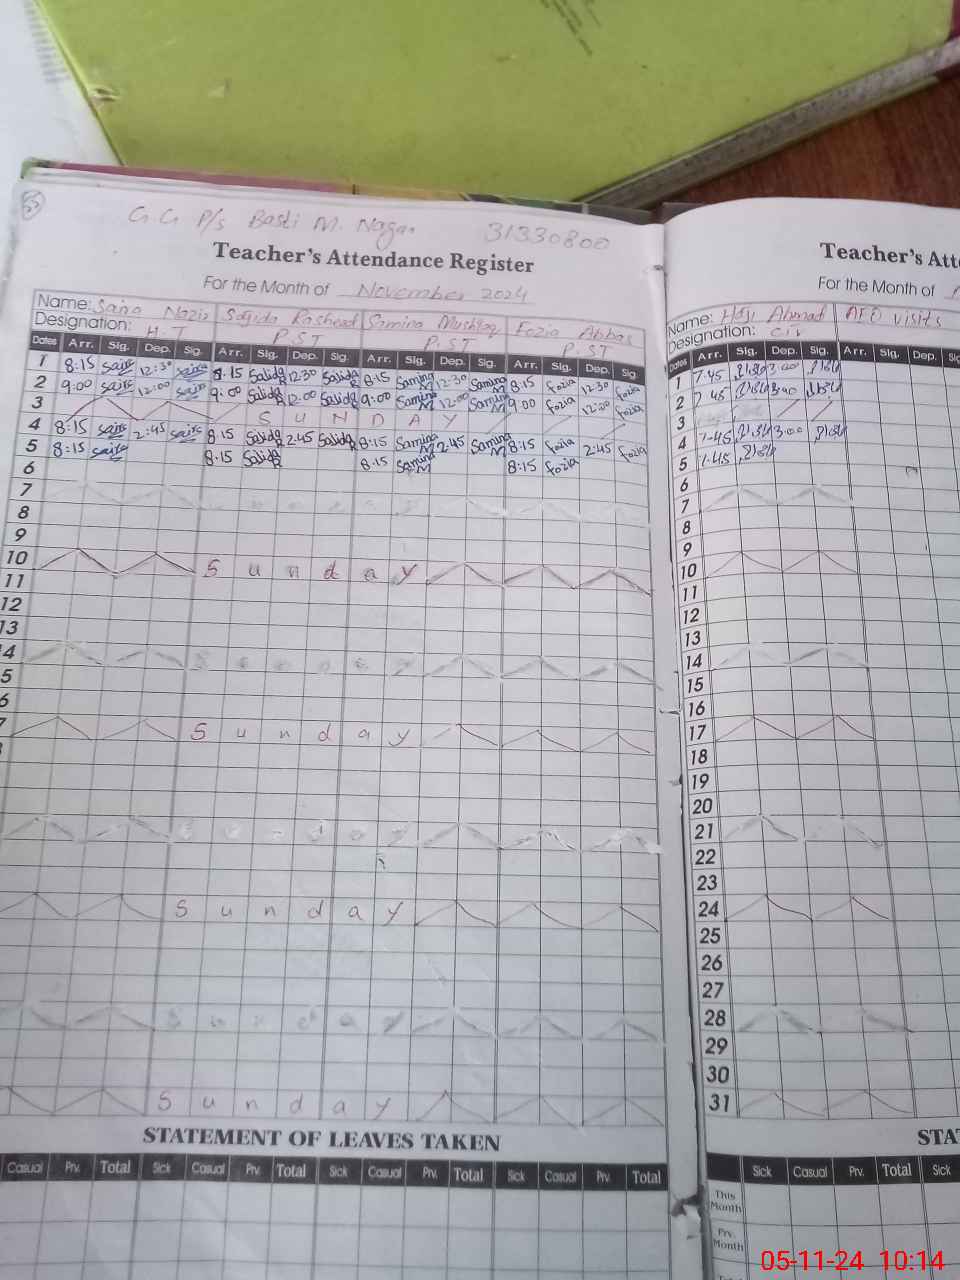 G G P/s Basti M. Nagar 31330800
Teacher's Attendance Register
For the Month of November 2024
Name: Saira Nazir Sajida Rasheed Samina Mushtaq Fozia Abbas
Designation: H.T P.ST P.ST P.ST
Dates Arr. Sig. Dep. Sig. Arr. Sig. Dep. Sig. Arr. Sig. Dep. Sig. Arr. Sig. Dep. Sig.
1 8:15 12:30 8:15 12:30 8:15 Samina 12:30 Samina 8:15 Fozia 12:30 Fozia
2 9:00 12:00 9:00 12:00 9:00 Samina 12:00 Samina 9:00 Fozia 12:00 Fozia
3 S U N D A Y
4 8:15 2:45 8:15 2:45 8:15 Samina 2:45 Samina 8:15 Fozia 2:45 Fozia
5 8:15 8:15 8:15 Samina 8:15 Fozia
6
7
8
9
10 S u n d a y
11
12
13
4
5
6
7 S u n d a y
S u n d a y
S u n d a y
STATEMENT OF LEAVES TAKEN
Casual Prv. Total Sick Casual Prv. Total Sick Casual Prv. Total Sick Casual Prv. Total
Teacher's Atte
For the Month of
Name: Haji Ahmad AEO visits
Designation: C.iv
Dates Arr. Sig. Dep. Sig. Arr. Sig. Dep. Sig
1 7:45 3:00
2 7:45
3
4 7:45 3:00
5 7:45
6
7
8
9
10
11
12
13
14
15
16
17
18
19
20
21
22
23
24
25
26
27
28
29
30
31
STA
Sick Casual Prv. Total Sick
This Month
Prv. Month
05-11-24 10:14